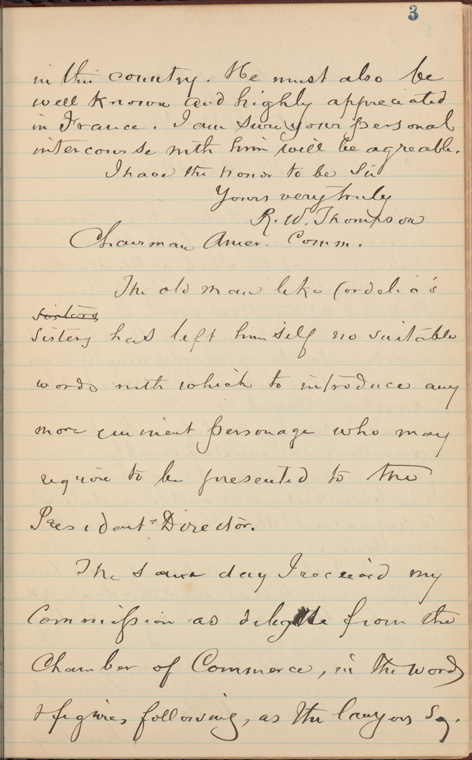 3
in this country. He must also be
well known and highly appreciated
in France. I am sure your personal
intercourse with him will be agreable.
I have the honor to be Sir
Yours very truly
R. W. Thompson
Chairman Amer. Comm.
The old man like Cordelia's
sisters
sisters has left himself no suitable
words with which to introduce any
more eminent personage who may
require to be presented to the
President-Director.
The same day I received my
Commission as delegate from the
Chamber of Commerce, in the words
& figures following, as the lawyers say.